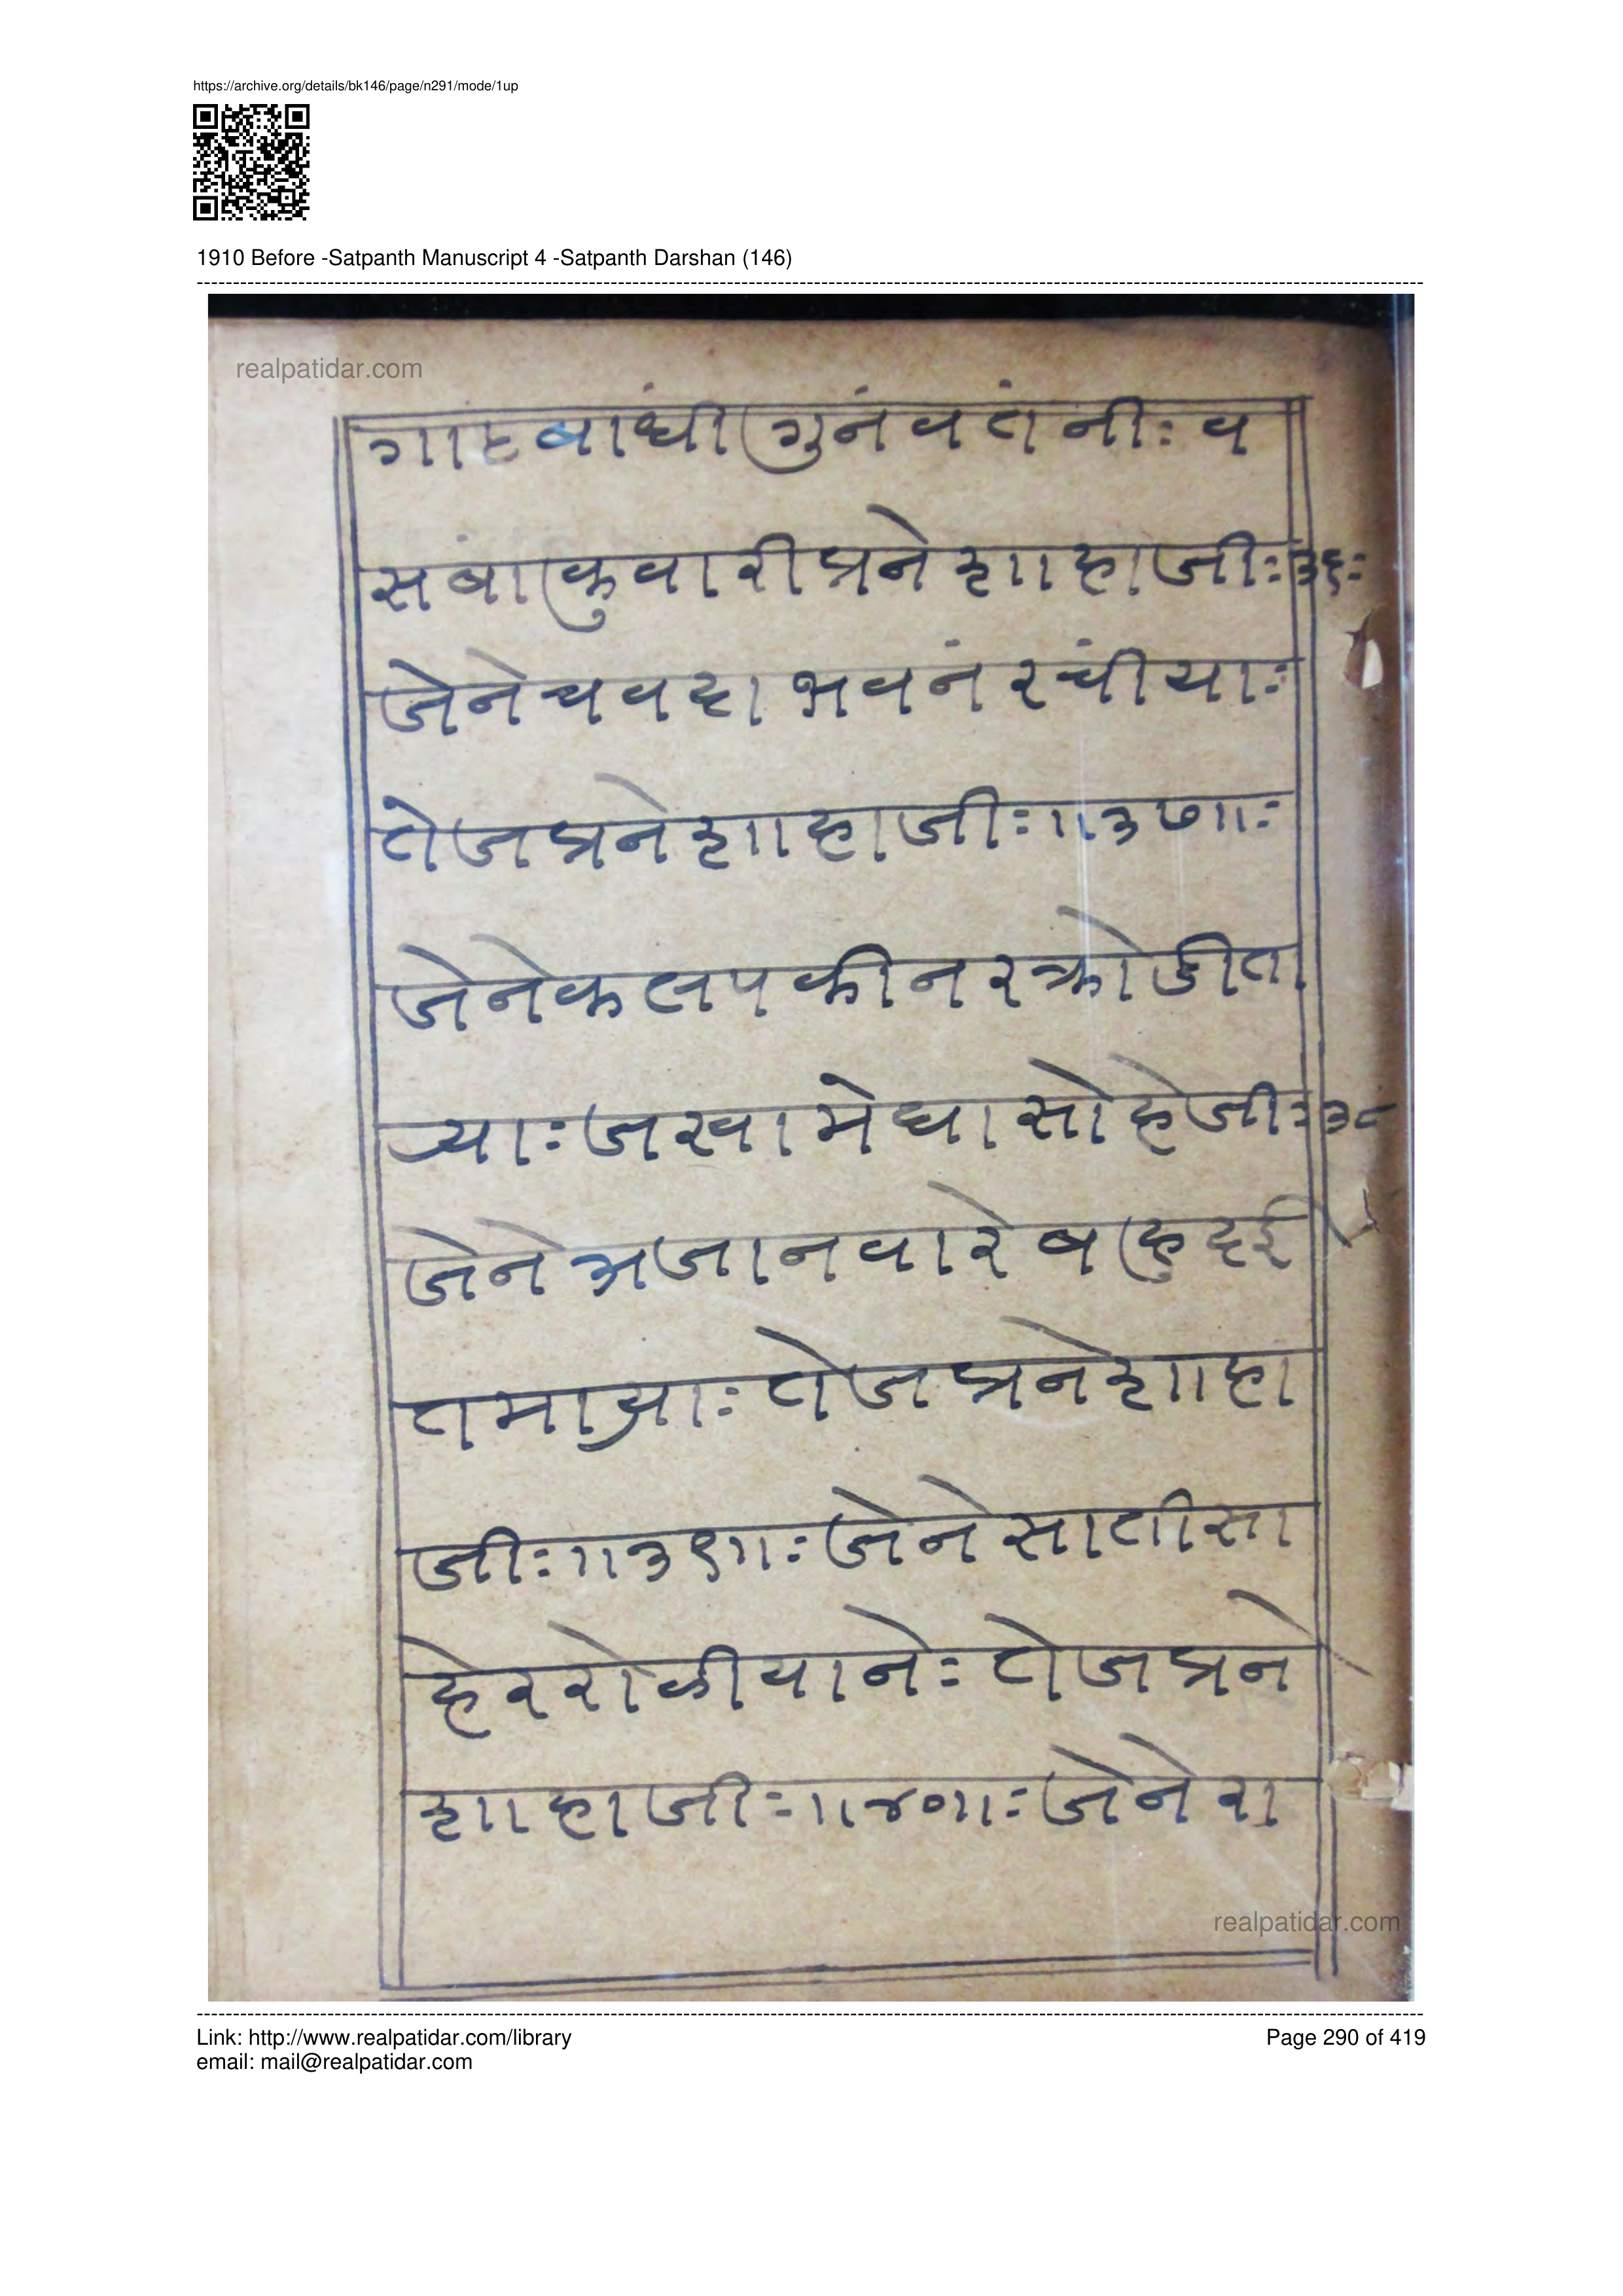 https://archive.org/details/bk146/page/n291/mode/1up
1910 Before -Satpanth Manuscript 4 -Satpanth Darshan (146)
realpatidar.com
गाहबांधी गुनंवतंनीः व
सवा कुवारी प्रने शाहाजीः ३६ः
जेने चवदा भवनं रचंीयाः
तेज प्रने शाहाजीः ॥३७॥ः
जेने कलप कीन र क्रोडीता
र्याः जखा मेघा सोहे जीः ३८
जेने भ्रजा नवारे बहु दई
तमाश्राः तेज प्रने शाहा
जीः ॥३९॥ः जेने साती सा
हेर रोकीयानेः तेज प्रने
शाहाजीः ॥४०॥ः जेने रा
realpatidar.com
Link: http://www.realpatidar.com/library
Page 290 of 419
email: mail@realpatidar.com